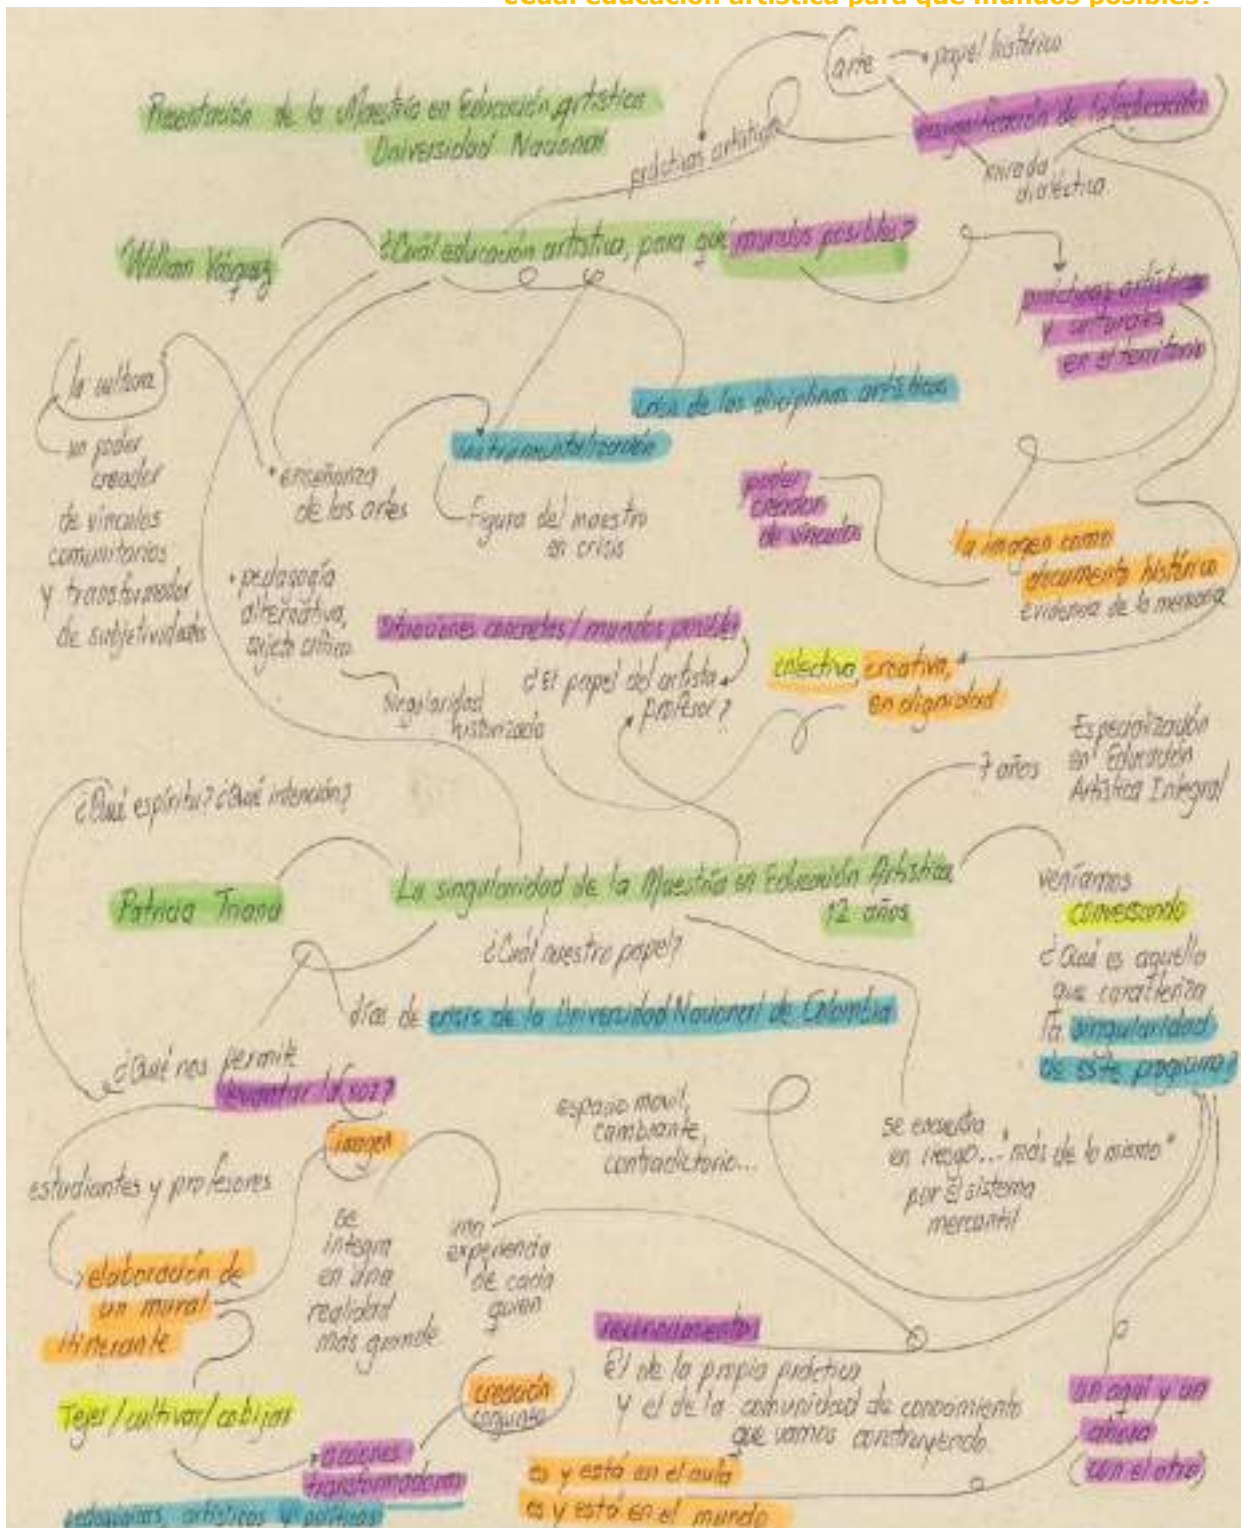 ¿Cuál educación artística para qué mundos posibles?
arte
papel histórico
Presentación de la Maestría en Educación Artística
Universidad Nacional
prácticas artísticas
resignificación de la educación
mirada
dialéctica
William Vásquez
¿Cuál educación artística, para qué mundos posibles?
prácticas artísticas
y culturales
en el territorio
la cultura
un poder
creador
de vínculos
comunitarios
y transformador
de subjetividades
crisis de las disciplinas artísticas
instrumentalización
enseñanza
de las artes
figura del maestro
en crisis
poder
creador
de vínculos
la imagen como
documento histórico
evidencia de la memoria
pedagogía
alternativa,
sujeto crítico
Situaciones concretas / mundos posibles
¿El papel del artista
profesor?
colectiva, creativa,
en dignidad
singularidad
historizada
7 años
Especialización
en Educación
Artística Integral
¿Qué espíritu? ¿Qué intención?
Patricia Triana
La singularidad de la Maestría en Educación Artística
12 años
veníamos
conversando
¿Cuál nuestro papel?
¿Qué es aquello
que caracteriza
la singularidad
de este programa?
días de crisis de la Universidad Nacional de Colombia
¿Qué nos permite
levantar la voz?
imagen
espacio móvil,
cambiante,
contradictorio...
se encuentra
en riesgo... "más de lo mismo"
por el sistema
mercantil
estudiantes y profesores
se
integra
en una
realidad
más grande
una
experiencia
de cada
quien
elaboración de
un mural
itinerante
reconocimiento
El de la propia práctica
y el de la comunidad de conocimiento
que vamos construyendo
Tejer / cultivar / cobijar
creación
conjunta
un aquí y un
ahora
(con el otro)
acciones
transformadoras
es y está en el aula
es y está en el mundo
pedagógicas, artísticas y políticas